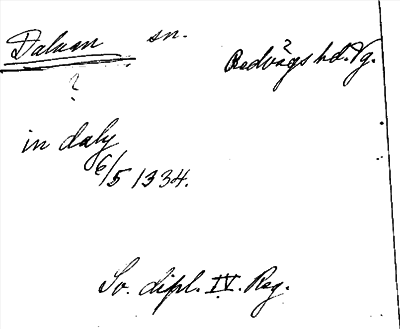 Dalum sn. Redvägs hd. Vg.
?
in daly
6/5 1334.
Sv. dipl. IV. Reg.